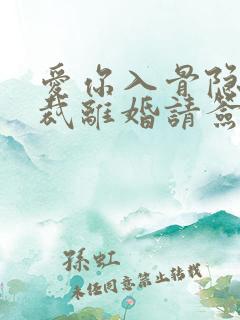 愛你入骨隐
裁離婚請簽
孫虹
未经同意禁止转载